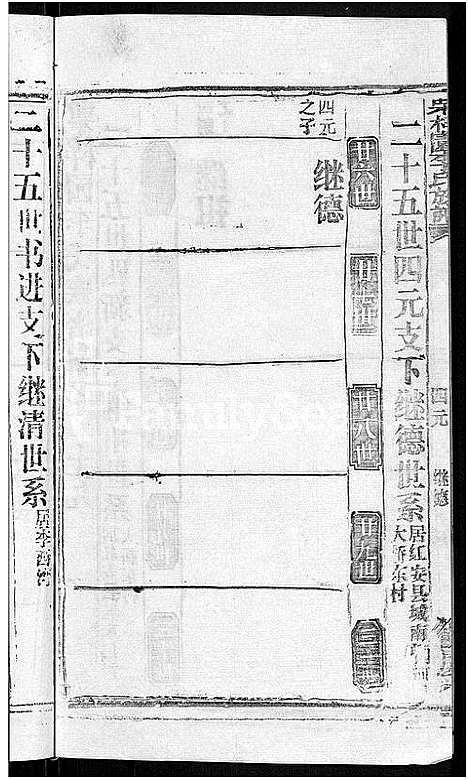 二十五世四元支下继德世系
居红安县城南门河
大桥东村
四元
继德
廿六世
廿七世
廿八世
廿九世
三十世
四元
之子
继德
二十五世书进支下继清世系
居李西河